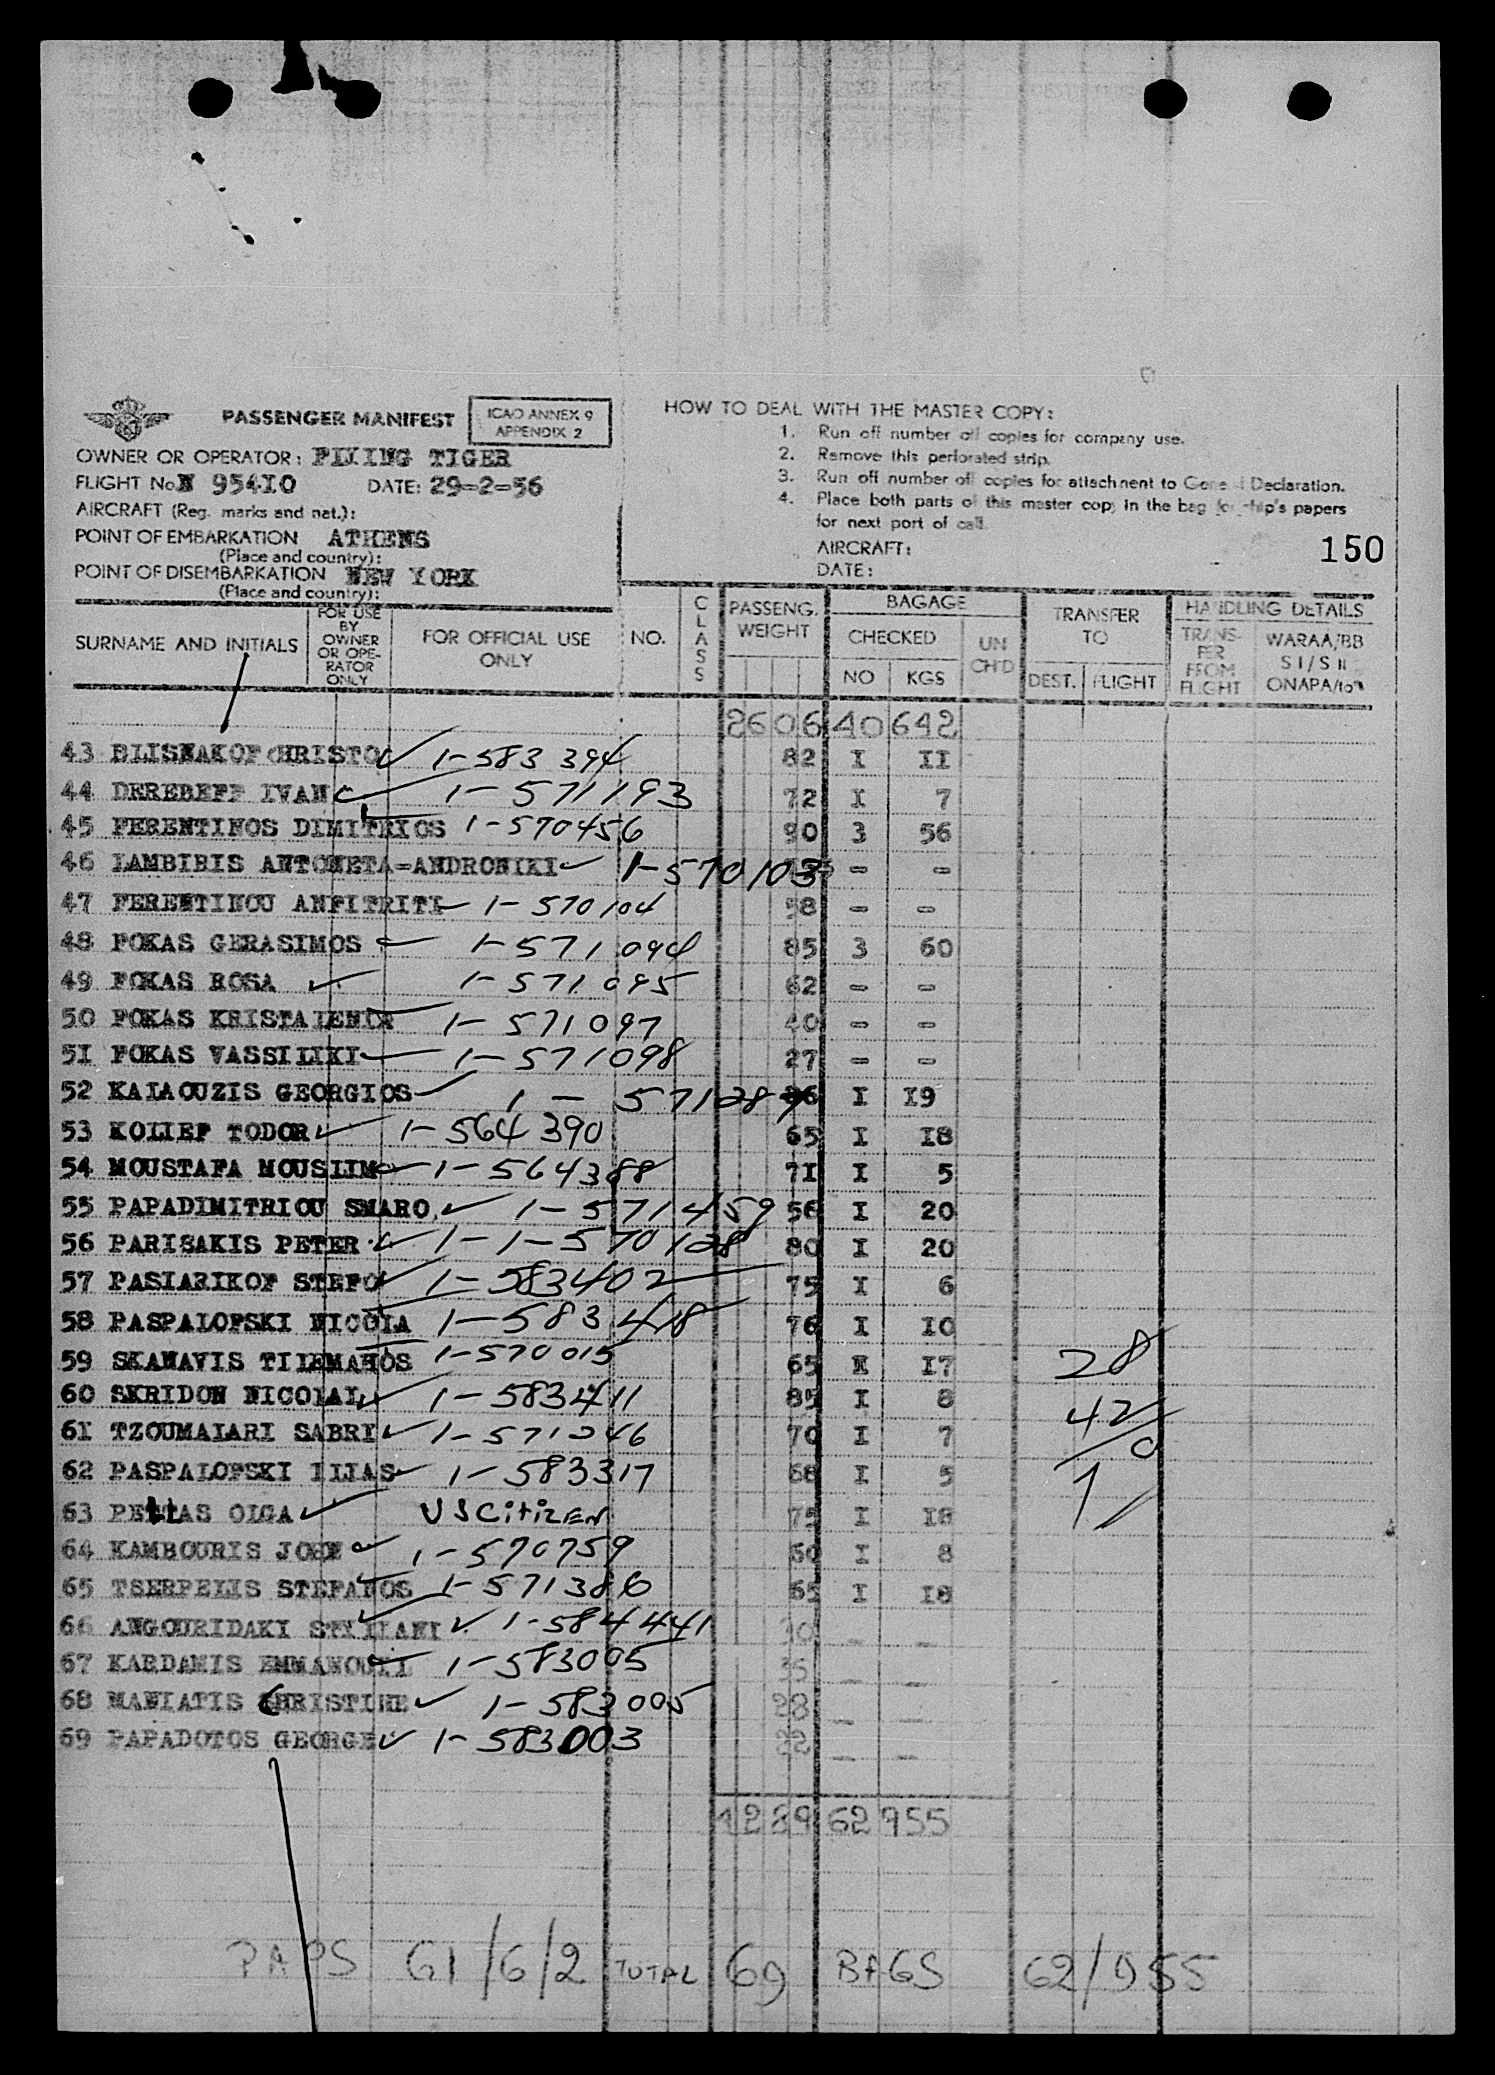 PASSENGER MANIFEST
ICAO ANNEX 9
APPENDIX 2
OWNER OR OPERATOR: TIGER
FLIGHT No. N 954I0 DATE: 29=2=56
AIRCRAFT (Reg. marks and nat.):
POINT OF EMBARKATION ATHENS
(Place and country):
POINT OF DISEMBARKATION NEW YORK
(Place and country):
HOW TO DEAL WITH THE MASTER COPY:
1. Run off number off copies for company use.
2. Remove this perforated strip.
3. Run off number off copies for attachment to General Declaration.
4. Place both parts of this master copy in the bag for ship's papers
for next port of call.
AIRCRAFT:
DATE:
150
SURNAME AND INITIALS
FOR USE
BY
OWNER
OR OPE-
RATOR
ONLY
FOR OFFICIAL USE
ONLY
NO.
CLASS
PASSENG.
WEIGHT
BAGAGE
CHECKED
NO KGS
UN
CH'D
TRANSFER
TO
DEST. FLIGHT
HANDLING DETAILS
TRANS-
FER
FROM
FLIGHT
WARAA/BB
S I / S II
2606 40 642
43 BLISNAKOF CHRISTO 1-583394 82 I II
44 DEREBEFF IVAN 1-571193 72 I 7
45 FERENTINOS DIMITRIOS 1-570456 90 3 56
46 LAMBIBIS ANTONETA=ANDRONIKI 1-570103 - -
47 FERENTINOU ANFITRITI 1-570104 58 - -
48 FOKAS GERASIMOS 1-571094 85 3 60
49 FOKAS ROSA 1-571095 62 - -
50 FOKAS 1-571097 40 - -
51 FOKAS VASSILIKI 1-571098 27 - -
52 KALAOUZIS GEORGIOS 1-571287 I I9
53 KOLLEF TODOR 1-564390 65 I I8
54 MOUSTAFA MOUSLIM 1-564388 7I I 5
55 PAPADIMITRIOU SMARO. 1-571459 56 I 20
56 PARISAKIS PETER 1-1-570128 80 I 20
57 PASLARIKOF STEFO 1-583402 75 I 6
58 PASPALOFSKI NICOLA 1-583418 76 I I0
59 SKANAVIS TILEMAHOS 1-570015 65 I7
60 SKRIDON NICOLAI 1-583411 85 I 8
61 TZOUMALARI SABRI 1-571246 70 I 7
62 PASPALOFSKI ILIAS 1-583317 68 I 5
63 PETTAS OLGA US CitizEN 75 I I8
64 KAMBOURIS JOHN 1-570759 60 I 8
65 TSERPELIS STEFANOS 1-571386 65 I I8
66 ANGOURIDAKI STYLIANI 1-584441 - -
67 KARDAMIS EMMANOUIL 1-583005 35 - -
68 MANIATIS CHRISTINE 1-583005 28 - -
69 PAPADOTOS GEORGE 1-583003 22 - -
28
42
0
1
62 955
61/6/2 TOTAL 69 BAGS 62/955